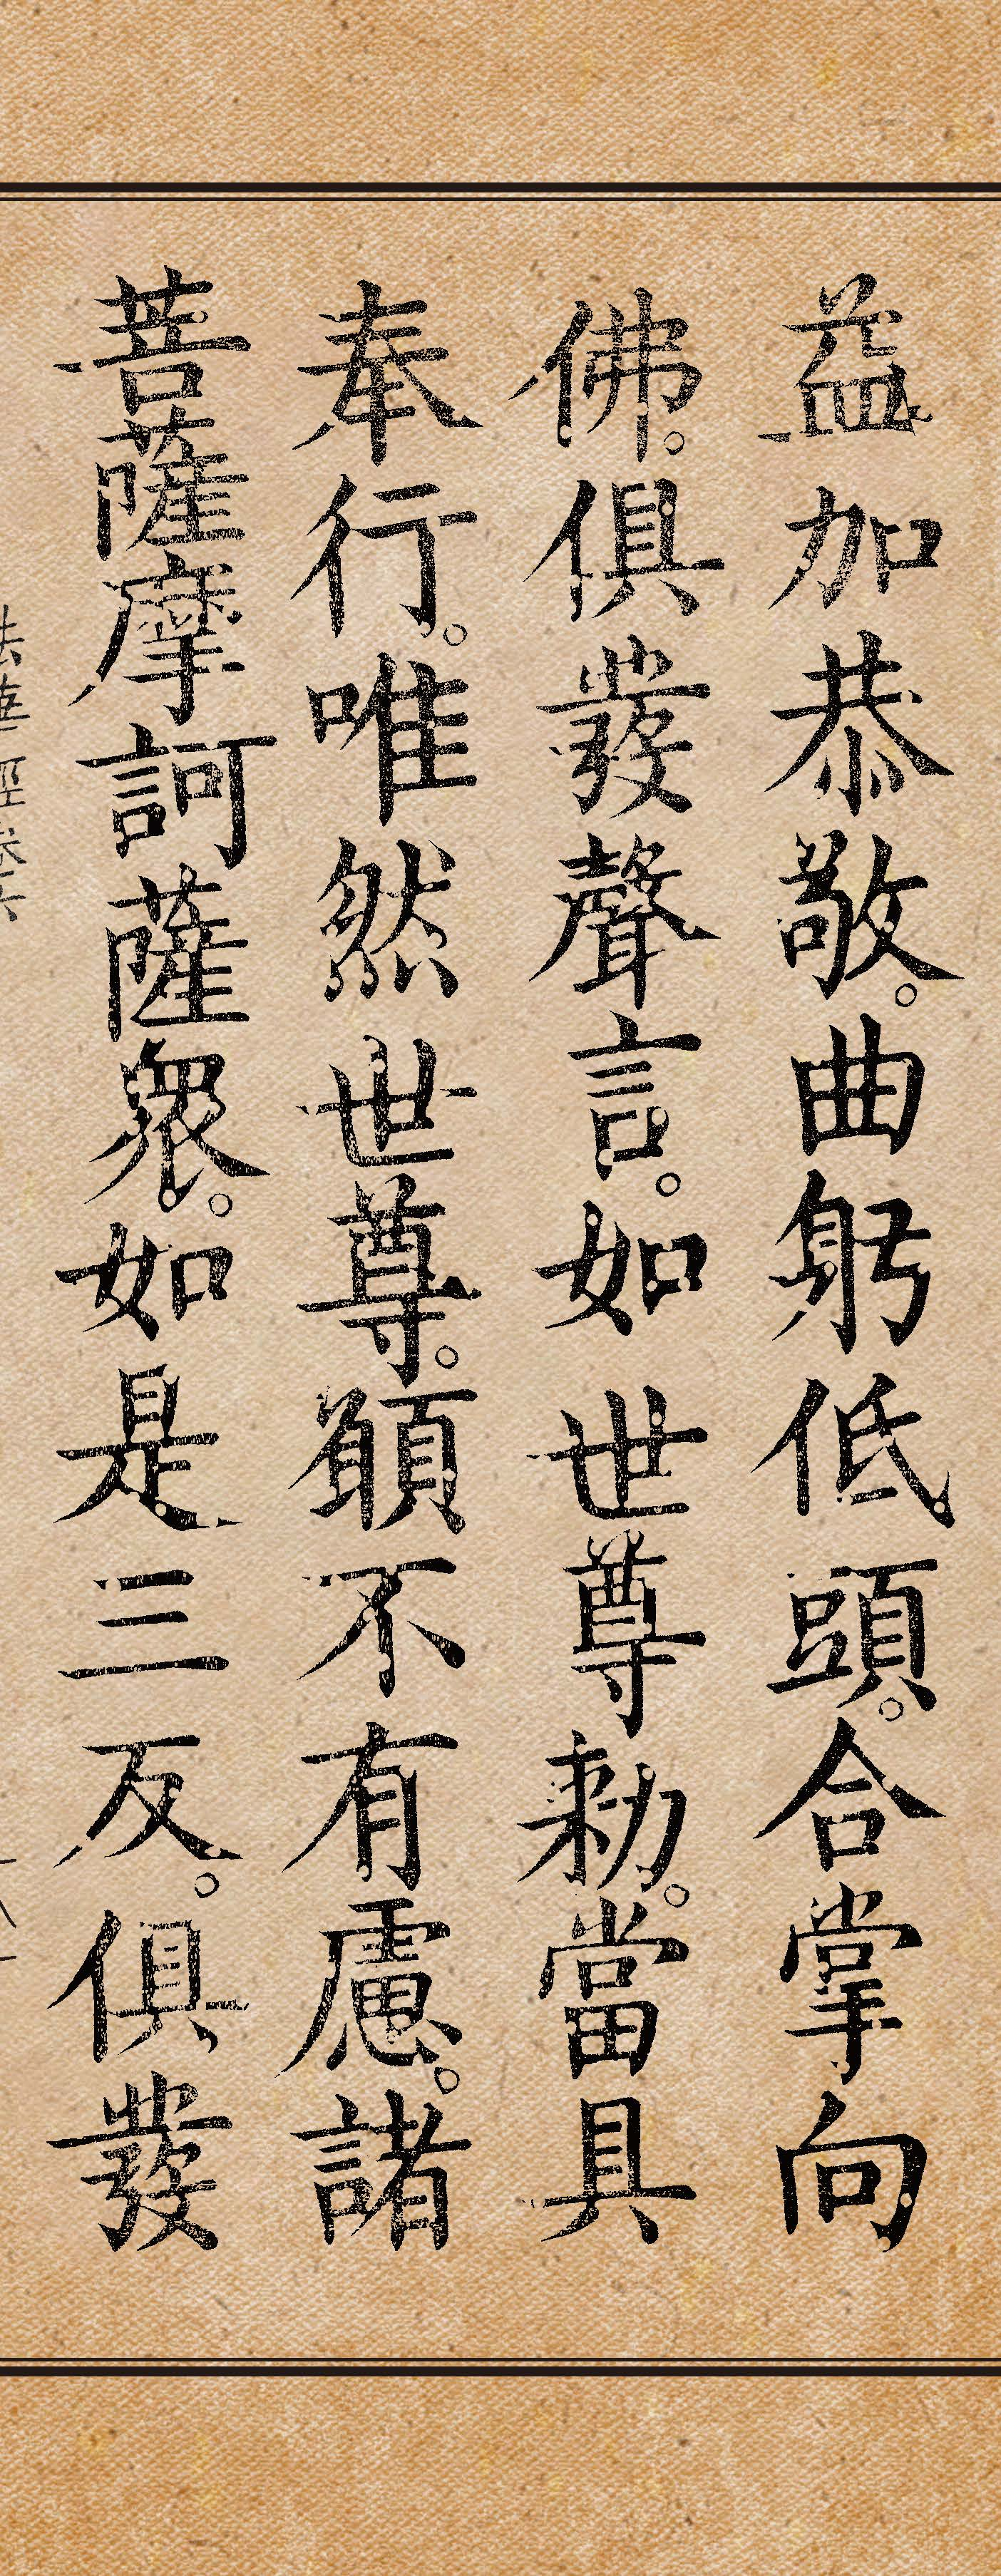 益加恭敬。曲躬低頭。合掌向
佛。俱發聲言。如世尊勅。當具
奉行。唯然世尊。願不有慮。諸
菩薩摩訶薩衆。如是三反。俱發
法華經卷六